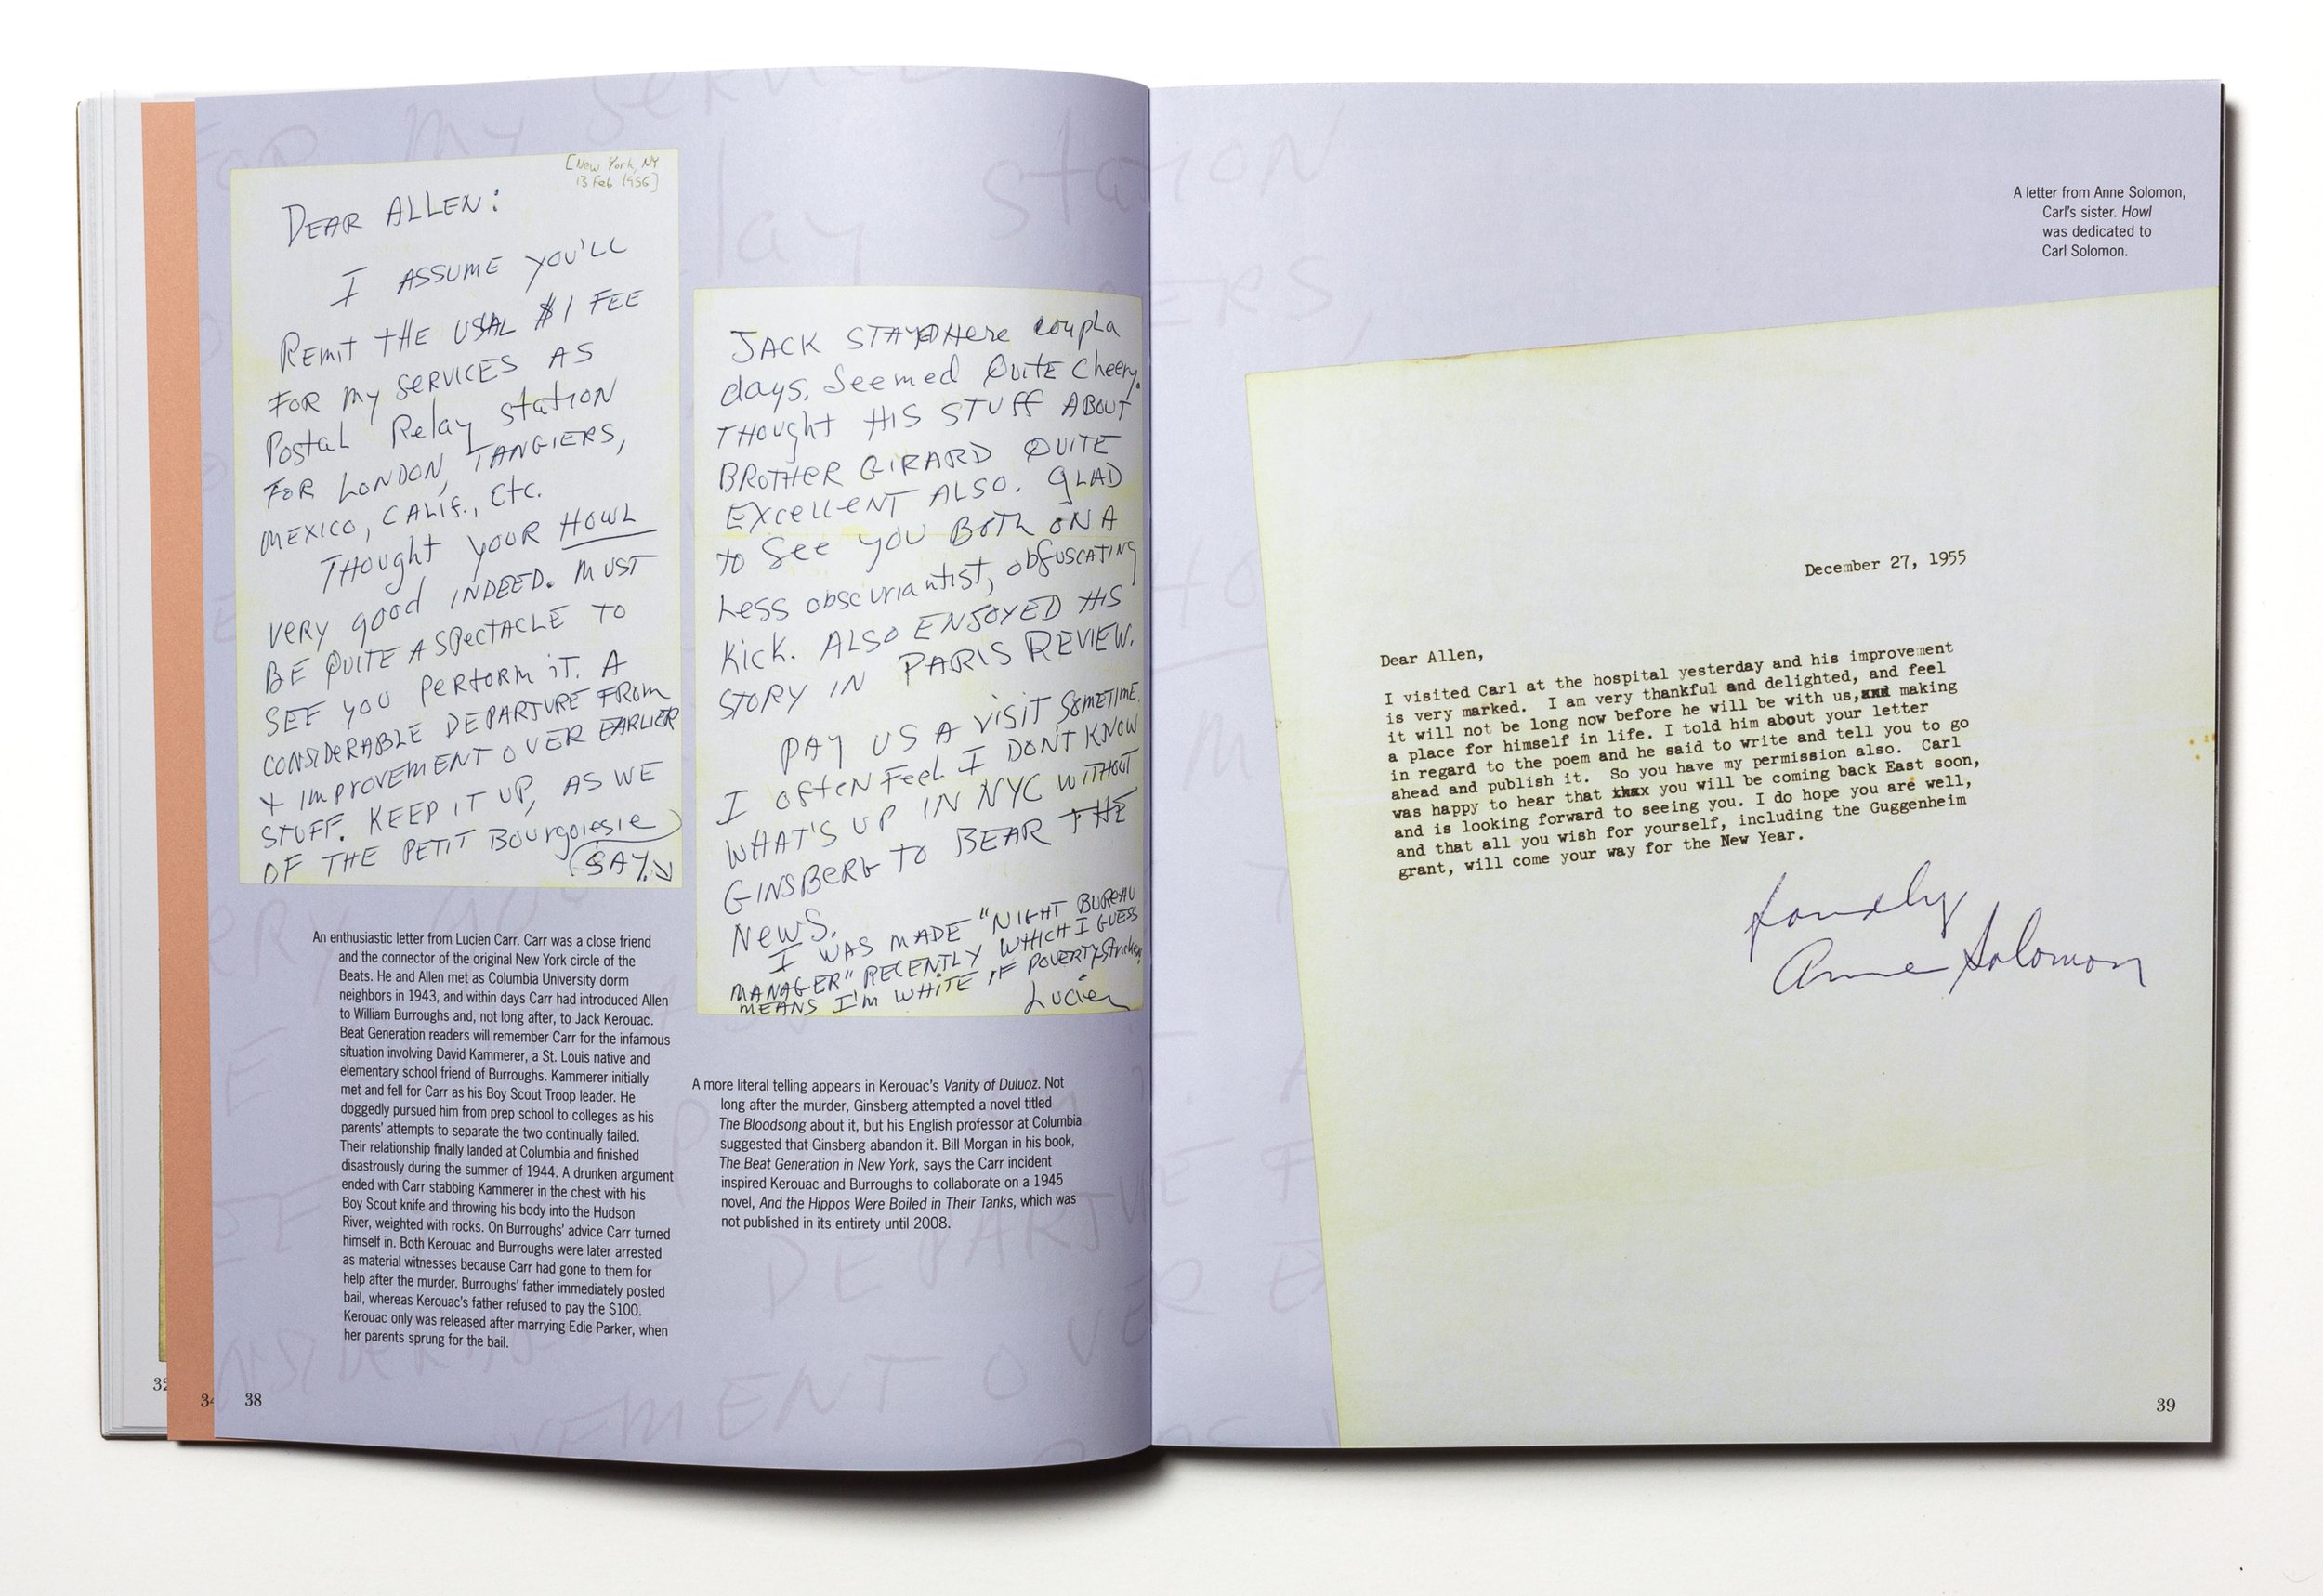 [New York, NY
13 Feb 1956]
DEAR ALLEN:
I ASSUME YOU'LL
REMIT THE USUAL $1 FEE
FOR MY SERVICES AS
POSTAL RELAY STATION
FOR LONDON, TANGIERS,
MEXICO, CALIF., ETC.
THOUGHT YOUR HOWL
VERY GOOD INDEED. MUST
BE QUITE A SPECTACLE TO
SEE YOU PERFORM IT. A
CONSIDERABLE DEPARTURE FROM
+ IMPROVEMENT OVER EARLIER
STUFF. KEEP IT UP, AS WE
OF THE PETIT BOURGOIESIE
SAY.
JACK STAYED HERE COUPLA
DAYS. SEEMED QUITE CHEERY.
THOUGHT HIS STUFF ABOUT
BROTHER GIRARD QUITE
EXCELLENT ALSO. GLAD
TO SEE YOU BOTH ON A
LESS OBSCURIANTIST, OBFUSCATING
KICK. ALSO ENJOYED HIS
STORY IN PARIS REVIEW.
PAY US A VISIT SOMETIME.
I OFTEN FEEL I DON'T KNOW
WHAT'S UP IN NYC WITHOUT
GINSBERG TO BEAR THE
NEWS.
I WAS MADE "NIGHT BUREAU
MANAGER" RECENTLY WHICH I GUESS
MEANS I'M WHITE IF POVERTY-STRICKEN
Lucien
An enthusiastic letter from Lucien Carr. Carr was a close friend
and the connector of the original New York circle of the
Beats. He and Allen met as Columbia University dorm
neighbors in 1943, and within days Carr had introduced Allen
to William Burroughs and, not long after, to Jack Kerouac.
Beat Generation readers will remember Carr for the infamous
situation involving David Kammerer, a St. Louis native and
elementary school friend of Burroughs. Kammerer initially
met and fell for Carr as his Boy Scout Troop leader. He
doggedly pursued him from prep school to colleges as his
parents' attempts to separate the two continually failed.
Their relationship finally landed at Columbia and finished
disastrously during the summer of 1944. A drunken argument
ended with Carr stabbing Kammerer in the chest with his
Boy Scout knife and throwing his body into the Hudson
River, weighted with rocks. On Burroughs' advice Carr turned
himself in. Both Kerouac and Burroughs were later arrested
as material witnesses because Carr had gone to them for
help after the murder. Burroughs' father immediately posted
bail, whereas Kerouac's father refused to pay the $100.
Kerouac only was released after marrying Edie Parker, when
her parents sprung for the bail.
A more literal telling appears in Kerouac's Vanity of Duluoz. Not
long after the murder, Ginsberg attempted a novel titled
The Bloodsong about it, but his English professor at Columbia
suggested that Ginsberg abandon it. Bill Morgan in his book,
The Beat Generation in New York, says the Carr incident
inspired Kerouac and Burroughs to collaborate on a 1945
novel, And the Hippos Were Boiled in Their Tanks, which was
not published in its entirety until 2008.
32
34
38
A letter from Anne Solomon,
Carl's sister. Howl
was dedicated to
Carl Solomon.
December 27, 1955
Dear Allen,
I visited Carl at the hospital yesterday and his improvement
is very marked. I am very thankful and delighted, and feel
it will not be long now before he will be with us, and making
a place for himself in life. I told him about your letter
in regard to the poem and he said to write and tell you to go
ahead and publish it. So you have my permission also. Carl
was happy to hear that you will be coming back East soon,
and is looking forward to seeing you. I do hope you are well,
and that all you wish for yourself, including the Guggenheim
grant, will come your way for the New Year.
Fondly
Anne Solomon
39